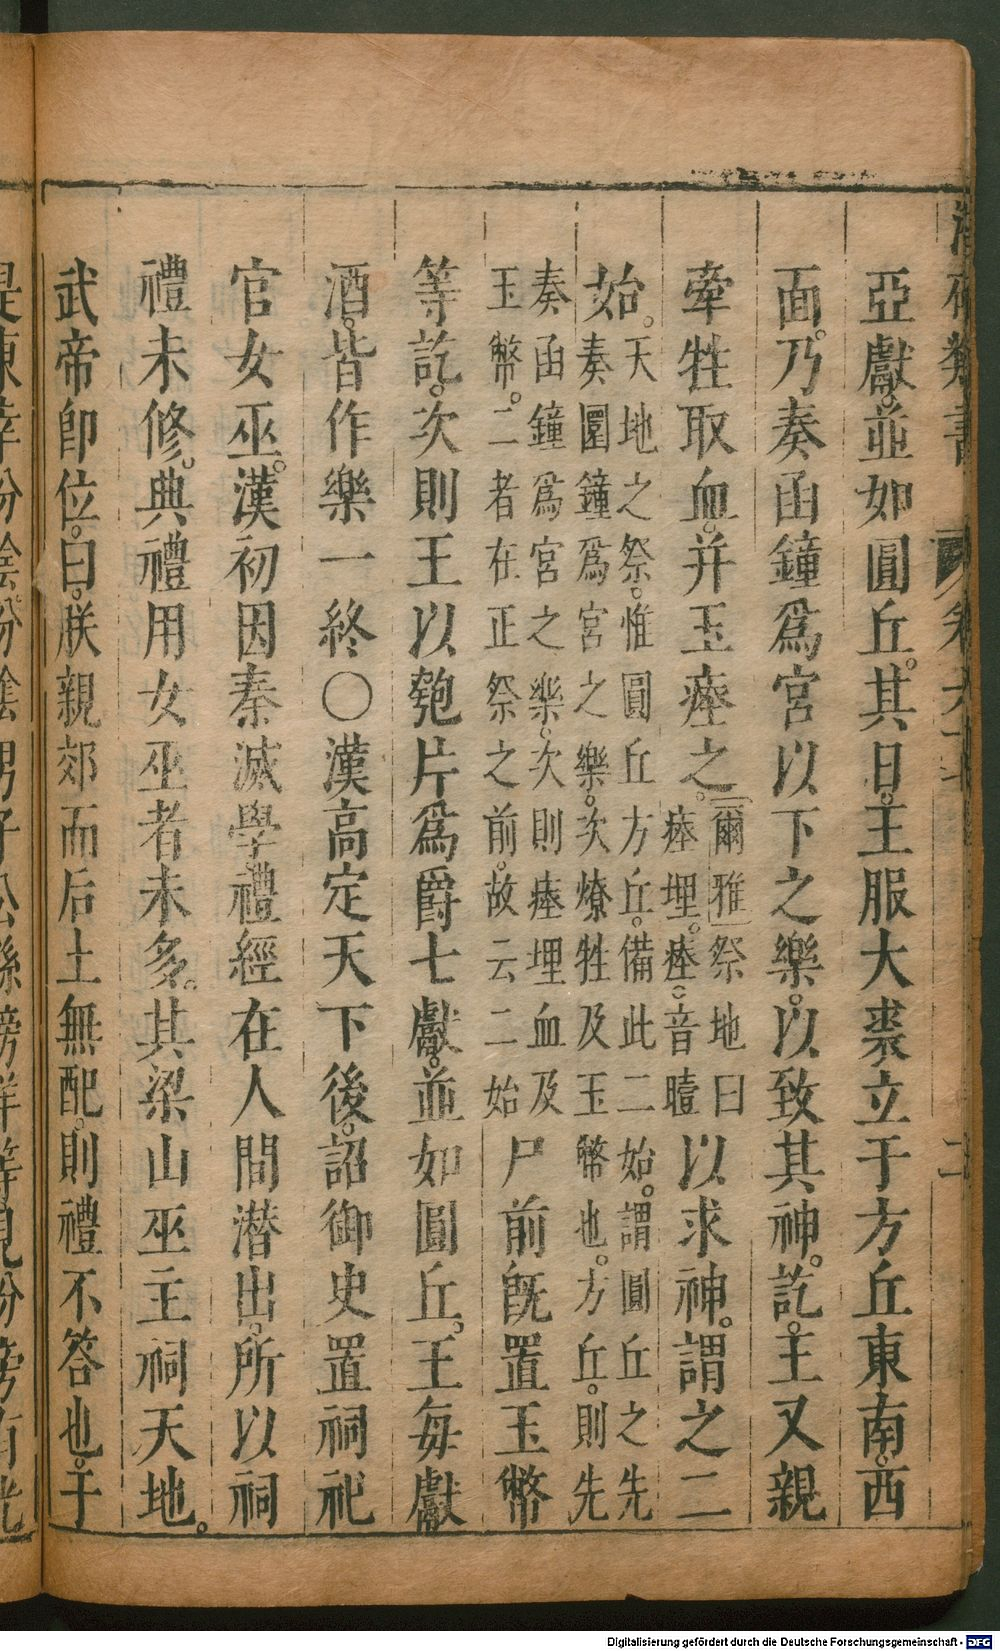 亞獻。並如圓丘。其日。王服大裘立于方丘東南。西
面。乃奏函鐘爲宮以下之樂。以致其神。訖。主又親
牽牲取血。并玉瘞之。
爾雅祭地曰
瘞埋。瘞。音曀
以求神。謂之二
始。
天地之祭。惟圓丘方丘。備此二始。謂圓丘之先
奏圜鐘爲宮之樂。次燎牲及玉幣也。方丘。則先
奏函鐘爲宮之樂。次則瘞埋血及
玉幣。二者在正祭之前。故云二始
尸前旣置玉幣
等訖。次則王以匏片爲爵七獻。並如圓丘。王每獻
酒。皆作樂一終〇漢高定天下後。詔御史置祠祀
官女巫。漢初因秦滅學。禮經在人間潜出。所以祠
禮未修。典禮用女巫者未多。其梁山巫主祠天地。
武帝卽位。曰。朕親郊而后土無配。則禮不答也。于
Digitalisierung gefördert durch die Deutsche Forschungsgemeinschaft - DFG